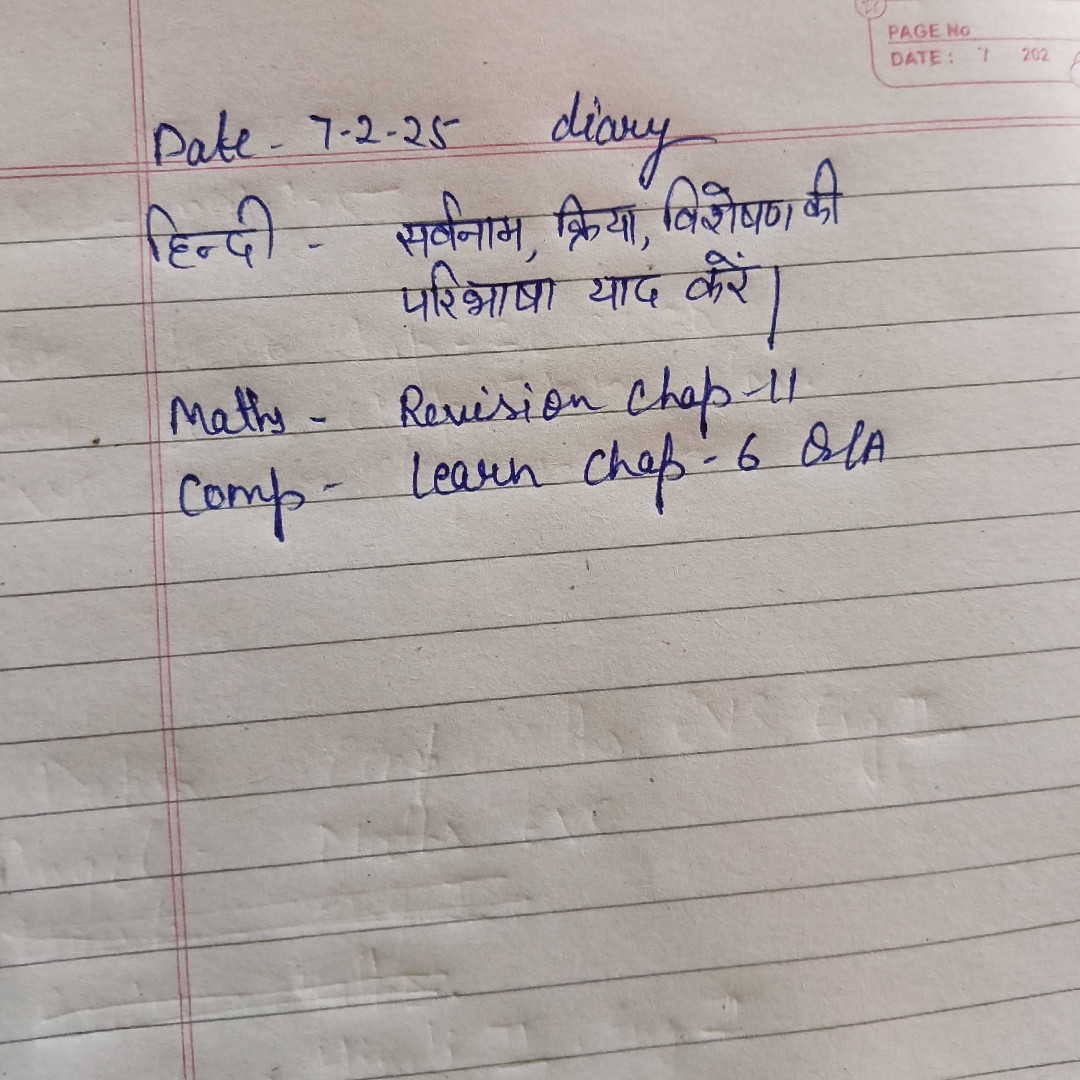 PAGE No
DATE: 7 202
Date - 7-2-25 diary
हिन्दी - सर्वनाम, क्रिया, विशेषण की
परिभाषा याद करें|
Maths - Revision Chap-11
Comp - learn Chap-6 Q/A